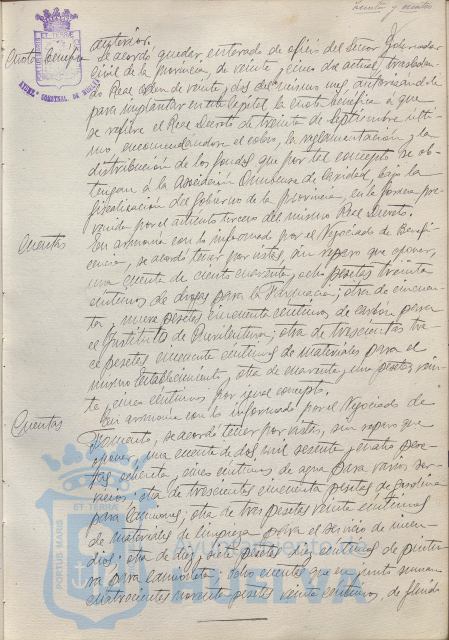 treinta y cuatro
anterior.
Cuota benéfica
Se acordó quedar enterado de oficio del Señor Gobernador
Civil de la provincia, de veinte y cinco de actual, trasladan-
do Real orden de veinte y dos del mismo mes autorizando
para implantar en esta Capital la cuota benéfica a que
se refiere el Real Decreto de treinta de Septiembre últi-
mo encomendando el cobro, la reglamentación y la
distribución de los fondos que por tal concepto se ob-
tengan a la Asociación Onubense de Caridad bajo la
fiscalización del Gobierno de la provincia, en la forma pre-
venida por el artículo tercero del mismo Real Decreto.
Cuentas
En armonía con lo informado por el Negociado de Benefi-
cencia, se acordó tener por vistas, sin reparo que oponer,
una cuenta de ciento cuarenta y ocho pesetas treinta
céntimos de drogas para la Farmacia; otra de cincuen-
ta y nueve pesetas cincuenta céntimos de carbón para
el Instituto de Puericultura; otra de trescientas tre-
ce pesetas cincuenta céntimos de materiales para el
mismo Establecimiento y otra de cuarenta y una pesetas vein-
te y cinco céntimos por igual concepto.
Cuentas
En armonía con lo informado por el Negociado de
Fomento, se acordó tener por vistas, sin reparo que
oponer, una cuenta de dos mil sesenta y cuatro pese-
tas ochenta y cinco céntimos de agua para varios ser-
vicios; otra de trescientas cincuenta pesetas de gasolina
para camiones; otra de tres pesetas veinte céntimos
de materiales de limpieza para el servicio de incen-
dios; otra de diez y seis pesetas diez céntimos de pintu-
ra para camioneta; ocho cuentas que en junto suman
cuatrocientas noventa pesetas veinte céntimos, de fluido
PORTUS MARIS ET TERRAE
Ayuntamiento de
HUELVA